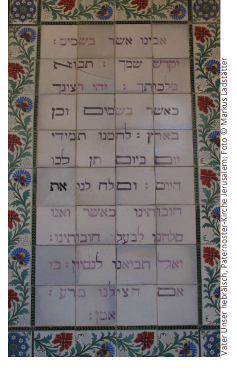 אבינו אשר בשמים:
יקדש שמך : תבוא
מלכותך : יהי רצונך
כאשר בשמים וכן
בארץ : לחמנו תמידי
יום ביום תן לנו
היום : וסלח לנו את
חובותינו כאשר ואנו
סלחנו לבעל חובותינו:
ואל תביאנו לנסיון: כי
אם הצילנו מרע :
אמן:
Vater Unser hebräisch, Paternoster-Kirche Jerusalem; Foto © Markus Ladstätter